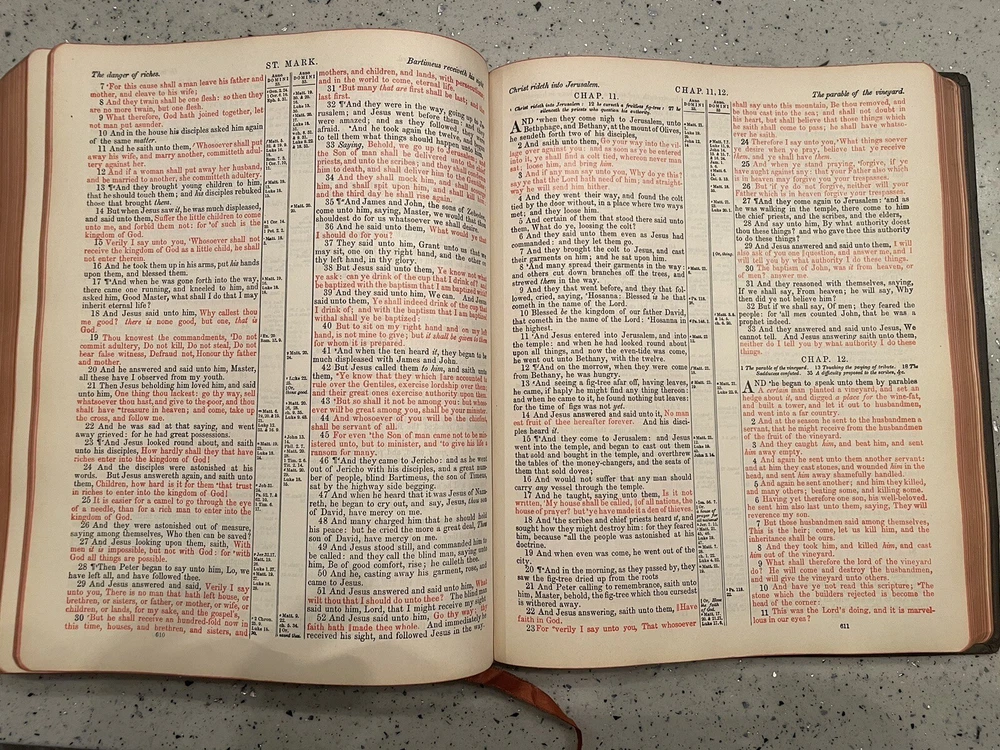 The danger of riches.
ST. MARK.
Bartimeus receiveth his sight.
7 For this cause shall a man leave his father and
mother, and cleave to his wife;
8 And they twain shall be one flesh: so then they
are no more twain, but one flesh.
9 What therefore, God hath joined together, let
not man put asunder.
10 And in the house his disciples asked him again
of the same matter.
11 And he saith unto them, Whosoever shall put
away his wife, and marry another, committeth adul-
tery against her.
12 And if a woman shall put away her husband,
and be married to another, she committeth adultery.
13 ¶And they brought young children to him,
that he should touch them; and his disciples rebuked
those that brought them.
14 But when Jesus saw it, he was much displeased,
and said unto them, Suffer the little children to come
unto me, and forbid them not: for of such is the
kingdom of God.
15 Verily I say unto you, Whosoever shall not
receive the kingdom of God as a little child, he shall
not enter therein.
16 And he took them up in his arms, put his hands
upon them, and blessed them.
17 ¶And when he was gone forth into the way,
there came one running, and kneeled to him, and
asked him, Good Master, what shall I do that I may
inherit eternal life?
18 And Jesus said unto him, Why callest thou
me good? there is none good, but one, that is
God.
19 Thou knowest the commandments, Do not
commit adultery, Do not kill, Do not steal, Do not
bear false witness, Defraud not, Honour thy father
and mother.
20 And he answered and said unto him, Master,
all these have I observed from my youth.
21 Then Jesus beholding him loved him, and said
unto him, One thing thou lackest: go thy way, sell
whatsoever thou hast, and give to the poor, and thou
shalt have treasure in heaven; and come, take up
the cross, and follow me.
22 And he was sad at that saying, and went
away grieved: for he had great possessions.
23 ¶And Jesus looked round about, and saith
unto his disciples, How hardly shall they that have
riches enter into the kingdom of God!
24 And the disciples were astonished at his
words. But Jesus answereth again, and saith unto
them, Children, how hard is it for them that trust
in riches to enter into the kingdom of God!
25 It is easier for a camel to go through the eye
of a needle, than for a rich man to enter into the
kingdom of God.
26 And they were astonished out of measure,
saying among themselves, Who then can be saved?
27 And Jesus looking upon them, saith, With
men it is impossible, but not with God: for with
God all things are possible.
28 ¶Then Peter began to say unto him, Lo, we
have left all, and have followed thee.
29 And Jesus answered and said, Verily I say
unto you, There is no man that hath left house, or
brethren, or sisters, or father, or mother, or wife, or
children, or lands, for my sake, and the gospel's,
30 But he shall receive an hundred-fold now in
this time, houses, and brethren, and sisters, and
610
mothers, and children, and lands, with persecutions;
and in the world to come, eternal life.
31 But many that are first shall be last; and the
last first.
32 ¶And they were in the way, going up to
rusalem; and Jesus went before them; and they
were amazed; and as they followed, they were
afraid. And he took again the twelve, and began
to tell them what things should happen unto
33 Saying, Behold, we go up to Jerusalem; and
the Son of man shall be delivered unto the chief
priests, and unto the scribes; and they shall condemn
him to death, and shall deliver him to the Gentiles;
34 And they shall mock him, and shall scourge
him, and shall spit upon him, and shall kill him:
and the third day he shall rise again.
35 ¶And James and John, the sons of Zebedee,
come unto him, saying, Master, we would that thou
shouldest do for us whatsoever we shall desire.
36 And he said unto them, What would ye that
I should do for you?
37 They said unto him, Grant unto us that we
may sit, one on thy right hand, and the other on
thy left hand, in thy glory.
38 But Jesus said unto them, Ye know not what
ye ask: can ye drink of the cup that I drink of? and
be baptized with the baptism that I am baptized with?
39 And they said unto him, We can. And Jesus
said unto them, Ye shall indeed drink of the cup that
I drink of; and with the baptism that I am baptized
withal shall ye be baptized:
40 But to sit on my right hand and on my left
hand, is not mine to give; but it shall be given to them
for whom it is prepared.
41 And when the ten heard it, they began to be
much displeased with James and John.
42 But Jesus called them to him, and saith unto
them, Ye know that they which are accounted to
rule over the Gentiles, exercise lordship over them;
and their great ones exercise authority upon them.
43 But so shall it not be among you: but whoso-
ever will be great among you, shall be your minister:
44 And whosoever of you will be the chiefest,
shall be servant of all.
45 For even the Son of man came not to be min-
istered unto, but to minister, and to give his life a
ransom for many.
46 ¶And they came to Jericho: and as he went
out of Jericho with his disciples, and a great num-
ber of people, blind Bartimeus, the son of Timeus,
sat by the highway side begging.
47 And when he heard that it was Jesus of Naza-
reth, he began to cry out, and say, Jesus, thou son
of David, have mercy on me.
48 And many charged him that he should hold
his peace: but he cried the more a great deal, Thou
son of David, have mercy on me.
49 And Jesus stood still, and commanded him to
be called: and they call the blind man, saying unto
him, Be of good comfort, rise; he calleth thee.
50 And he, casting away his garment, rose, and
came to Jesus.
51 And Jesus answered and said unto him, What
wilt thou that I should do unto thee? The blind man
said unto him, Lord, that I might receive my sight.
52 And Jesus said unto him, Go thy way; thy
faith hath made thee whole. And immediately he
received his sight, and followed Jesus in the way.
Christ rideth into Jerusalem.
CHAP. 11, 12.
The parable of the vineyard.
CHAP. 11.
1 Christ rideth into Jerusalem: 12 he curseth a fruitless fig-tree: 27 he
silenceth the priests who question his authority.
AND when they came nigh to Jerusalem, unto
Bethphage, and Bethany, at the mount of Olives,
he sendeth forth two of his disciples,
2 And saith unto them, Go your way into the vil-
lage over against you: and as soon as ye be entered
into it, ye shall find a colt tied, whereon never man
sat; loose him, and bring him.
3 And if any man say unto you, Why do ye this?
say ye that the Lord hath need of him; and straight-
way he will send him hither.
4 And they went their way, and found the colt
tied by the door without, in a place where two ways
met; and they loose him.
5 And certain of them that stood there said unto
them, What do ye, loosing the colt?
6 And they said unto them even as Jesus had
commanded: and they let them go.
7 And they brought the colt to Jesus, and cast
their garments on him; and he sat upon him.
8 And many spread their garments in the way:
and others cut down branches off the trees, and
strewed them in the way.
9 And they that went before, and they that fol-
lowed, cried, saying, Hosanna: Blessed is he that
cometh in the name of the Lord.
10 Blessed be the kingdom of our father David,
that cometh in the name of the Lord: Hosanna in
the highest.
11 And Jesus entered into Jerusalem, and into
the temple: and when he had looked round about
upon all things, and now the even-tide was come,
he went out unto Bethany, with the twelve.
12 ¶And on the morrow, when they were come
from Bethany, he was hungry.
13 And seeing a fig-tree afar off, having leaves,
he came, if haply he might find any thing thereon:
and when he came to it, he found nothing but leaves:
for the time of figs was not yet.
14 And Jesus answered and said unto it, No man
eat fruit of thee hereafter forever. And his disci-
ples heard it.
15 ¶And they come to Jerusalem: and Jesus
went into the temple, and began to cast out them
that sold and bought in the temple, and overthrew
the tables of the money-changers, and the seats of
them that sold doves;
16 And would not suffer that any man should
carry any vessel through the temple.
17 And he taught, saying unto them, Is it not
written, My house shall be called, of all nations, the
house of prayer? but ye have made it a den of thieves.
18 And the scribes and chief priests heard it, and
sought how they might destroy him: for they feared
him, because all the people was astonished at his
doctrine.
19 And when even was come, he went out of the
city.
20 ¶And in the morning, as they passed by, they
saw the fig-tree dried up from the roots
21 And Peter calling to remembrance, saith unto
him, Master, behold, the fig-tree which thou cursedst
is withered away.
22 And Jesus answering, saith unto them, Have
faith in God.
23 For verily I say unto you, That whosoever
shall say unto this mountain, Be thou removed, and
be thou cast into the sea; and shall not doubt in
his heart, but shall believe that those things which
he saith shall come to pass; he shall have whatso-
ever he saith.
24 Therefore I say unto you, What things soever
ye desire when ye pray, believe that ye receive
them, and ye shall have them.
25 And when ye stand praying, forgive, if ye
have aught against any: that your Father also which
is in heaven may forgive you your trespasses.
26 But if ye do not forgive, neither will your
Father which is in heaven forgive your trespasses.
27 ¶And they come again to Jerusalem: and as
he was walking in the temple, there come to him
the chief priests, and the scribes, and the elders,
28 And say unto him, By what authority doest
thou these things? and who gave thee this authority
to do these things?
29 And Jesus answered and said unto them, I will
also ask of you one question, and answer me, and
I will tell you by what authority I do these things.
30 The baptism of John, was it from heaven, or
of men? answer me.
31 And they reasoned with themselves, saying,
If we shall say, From heaven; he will say, Why
then did ye not believe him?
32 But if we shall say, Of men; they feared the
people: for all men counted John, that he was a
prophet indeed.
33 And they answered and said unto Jesus, We
cannot tell. And Jesus answering saith unto them,
neither do I tell you by what authority I do these
things.
CHAP. 12.
1 The parable of the vineyard. 13 Touching the paying of tribute. 18 The
Sadducees confuted. 35 A difficulty proposed to the scribes, &c.
AND he began to speak unto them by parables
A certain man planted a vineyard, and set an
hedge about it, and digged a place for the wine-fat,
and built a tower, and let it out to husbandmen,
and went into a far country.
2 And at the season he sent to the husbandmen a
servant, that he might receive from the husbandmen
of the fruit of the vineyard.
3 And they caught him, and beat him, and sent
him away empty.
4 And again he sent unto them another servant:
and at him they cast stones, and wounded him in the
head, and sent him away shamefully handled.
5 And again he sent another; and him they killed,
and many others; beating some, and killing some.
6 Having yet therefore one son, his well-beloved,
he sent him also last unto them, saying, They will
reverence my son.
7 But those husbandmen said among themselves,
This is the heir; come, let us kill him, and the
inheritance shall be ours.
8 And they took him, and killed him, and cast
him out of the vineyard.
9 What shall therefore the lord of the vineyard
do? He will come and destroy the husbandmen,
and will give the vineyard unto others.
10 And have ye not read this scripture; The
stone which the builders rejected is become the
head of the corner:
11 This was the Lord's doing, and it is marvel-
lous in our eyes?
611